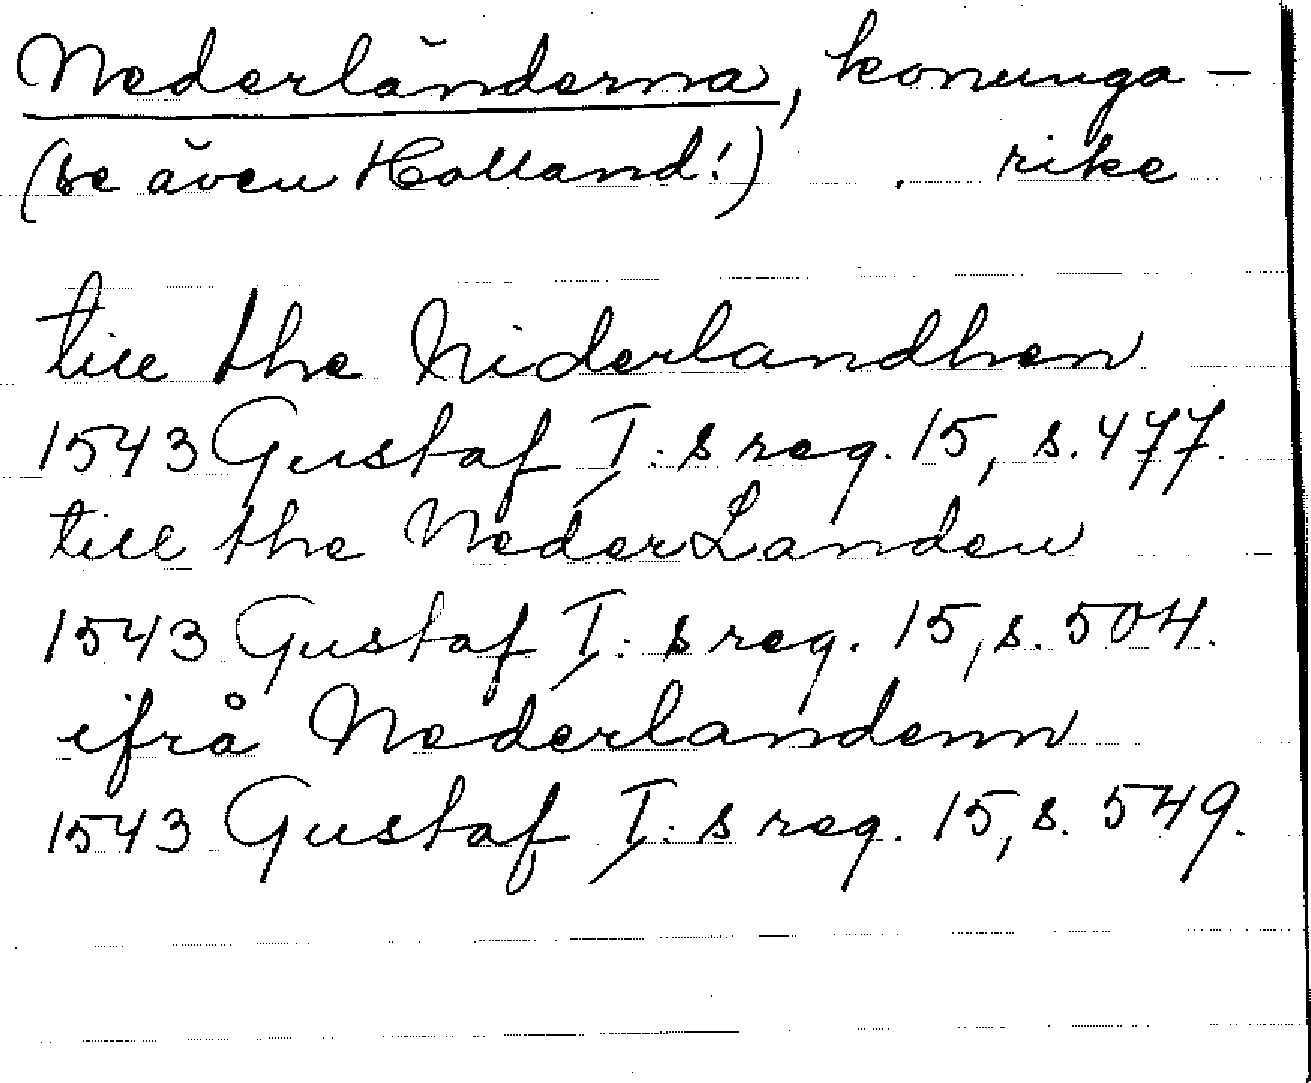 Nederländerna, konunga-
(se även Holland!) rike
till the Niderlandhen
1543 Gustaf I:s reg. 15, s. 477.
till the NederLanden
1543 Gustaf I:s reg. 15, s. 504.
ifrå Nederlandenn
1543 Gustaf I:s reg. 15, s. 549.